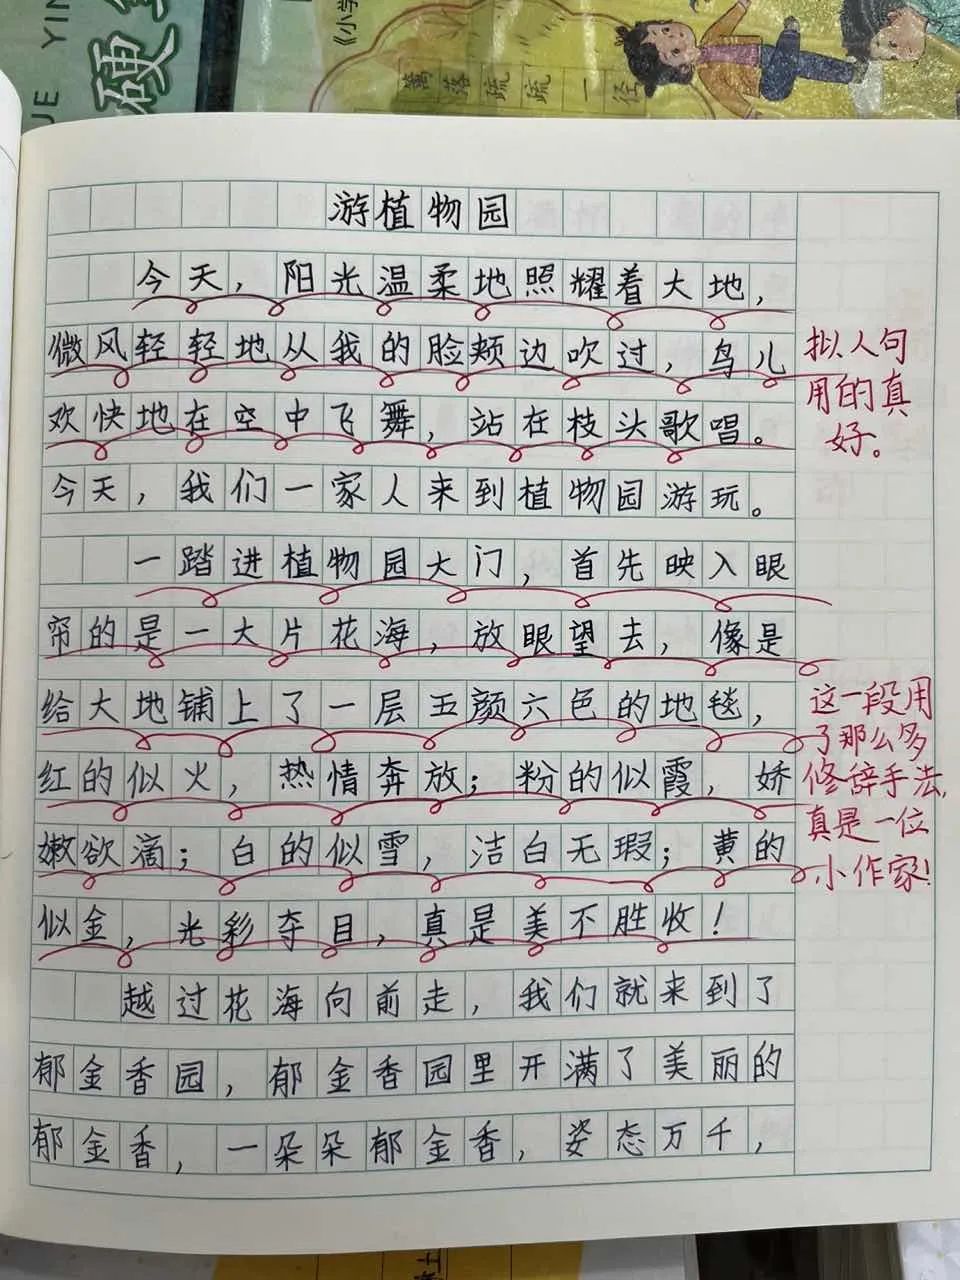 YIN
UE
硬
《小学
篱落疏疏一径
游植物园
今天，阳光温柔地照耀着大地，
微风轻轻地从我的脸颊边吹过，鸟儿
欢快地在空中飞舞，站在枝头歌唱。
今天，我们一家人来到植物园游玩。
一踏进植物园大门，首先映入眼
帘的是一大片花海，放眼望去，像是
给大地铺上了一层五颜六色的地毯，
红的似火，热情奔放；粉的似霞，娇
嫩欲滴；白的似雪，洁白无瑕；黄的
似金，光彩夺目，真是美不胜收！
越过花海向前走，我们就来到了
郁金香园，郁金香园里开满了美丽的
郁金香，一朵朵郁金香，姿态万千，
拟人句
用的真
好。
这一段用
了那么多
修辞手法，
真是一位
小作家！